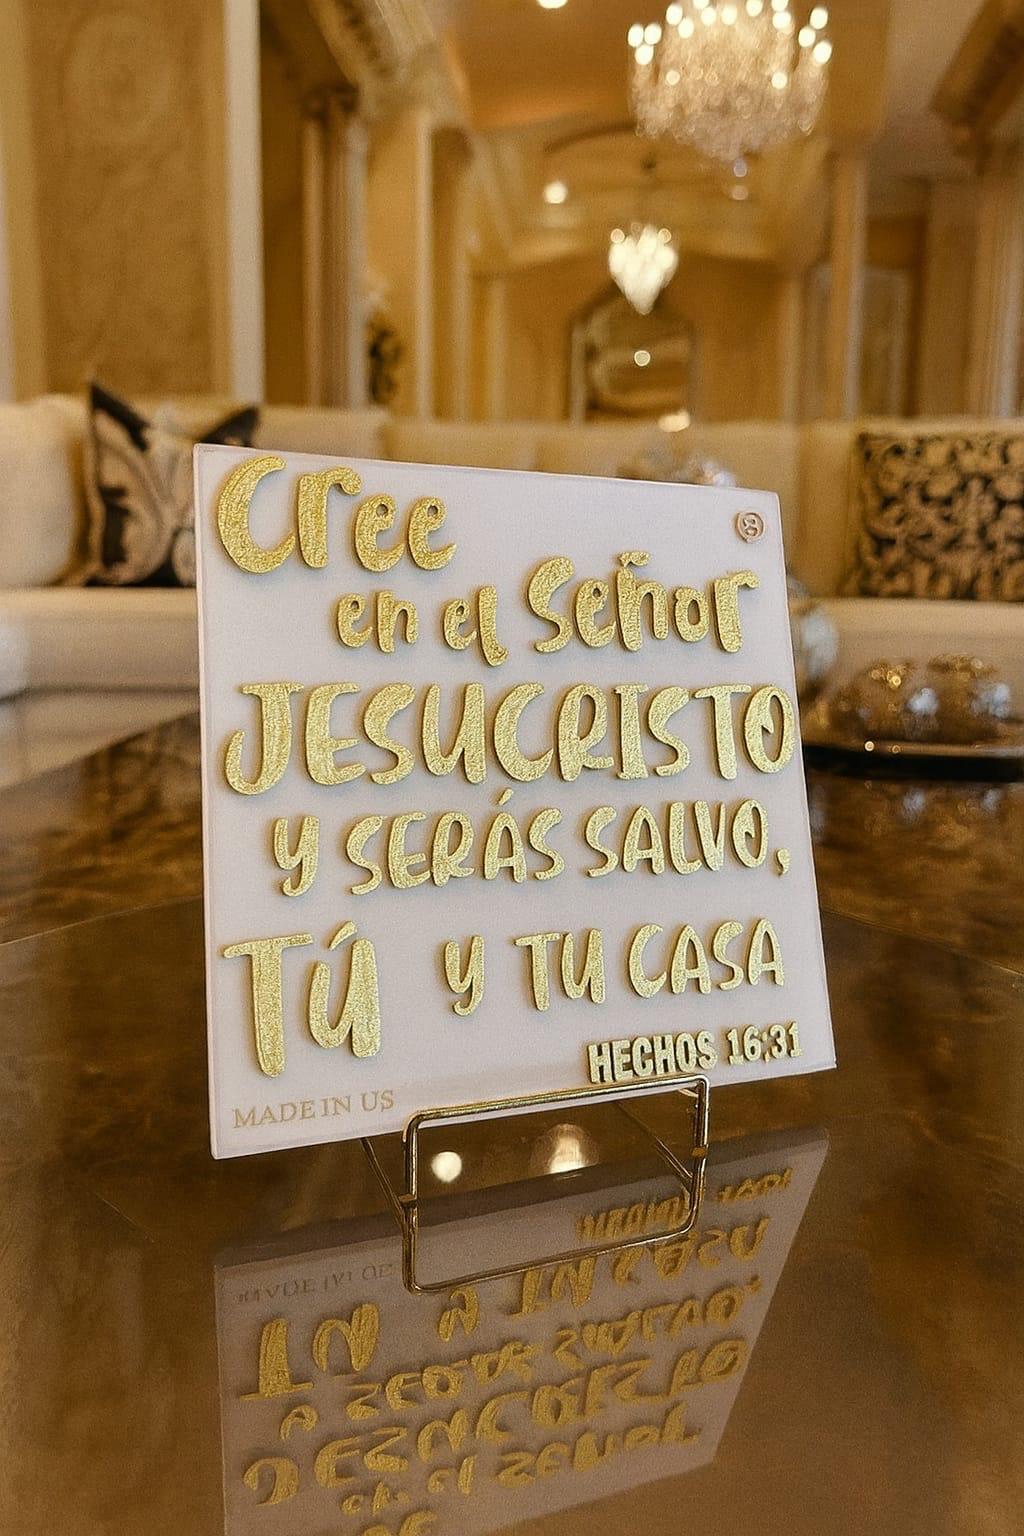 Cree
en el Señor
JESUCRISTO
Y SERÁS SALVO,
TÚ Y TU CASA
HECHOS 16:31
MADE IN US